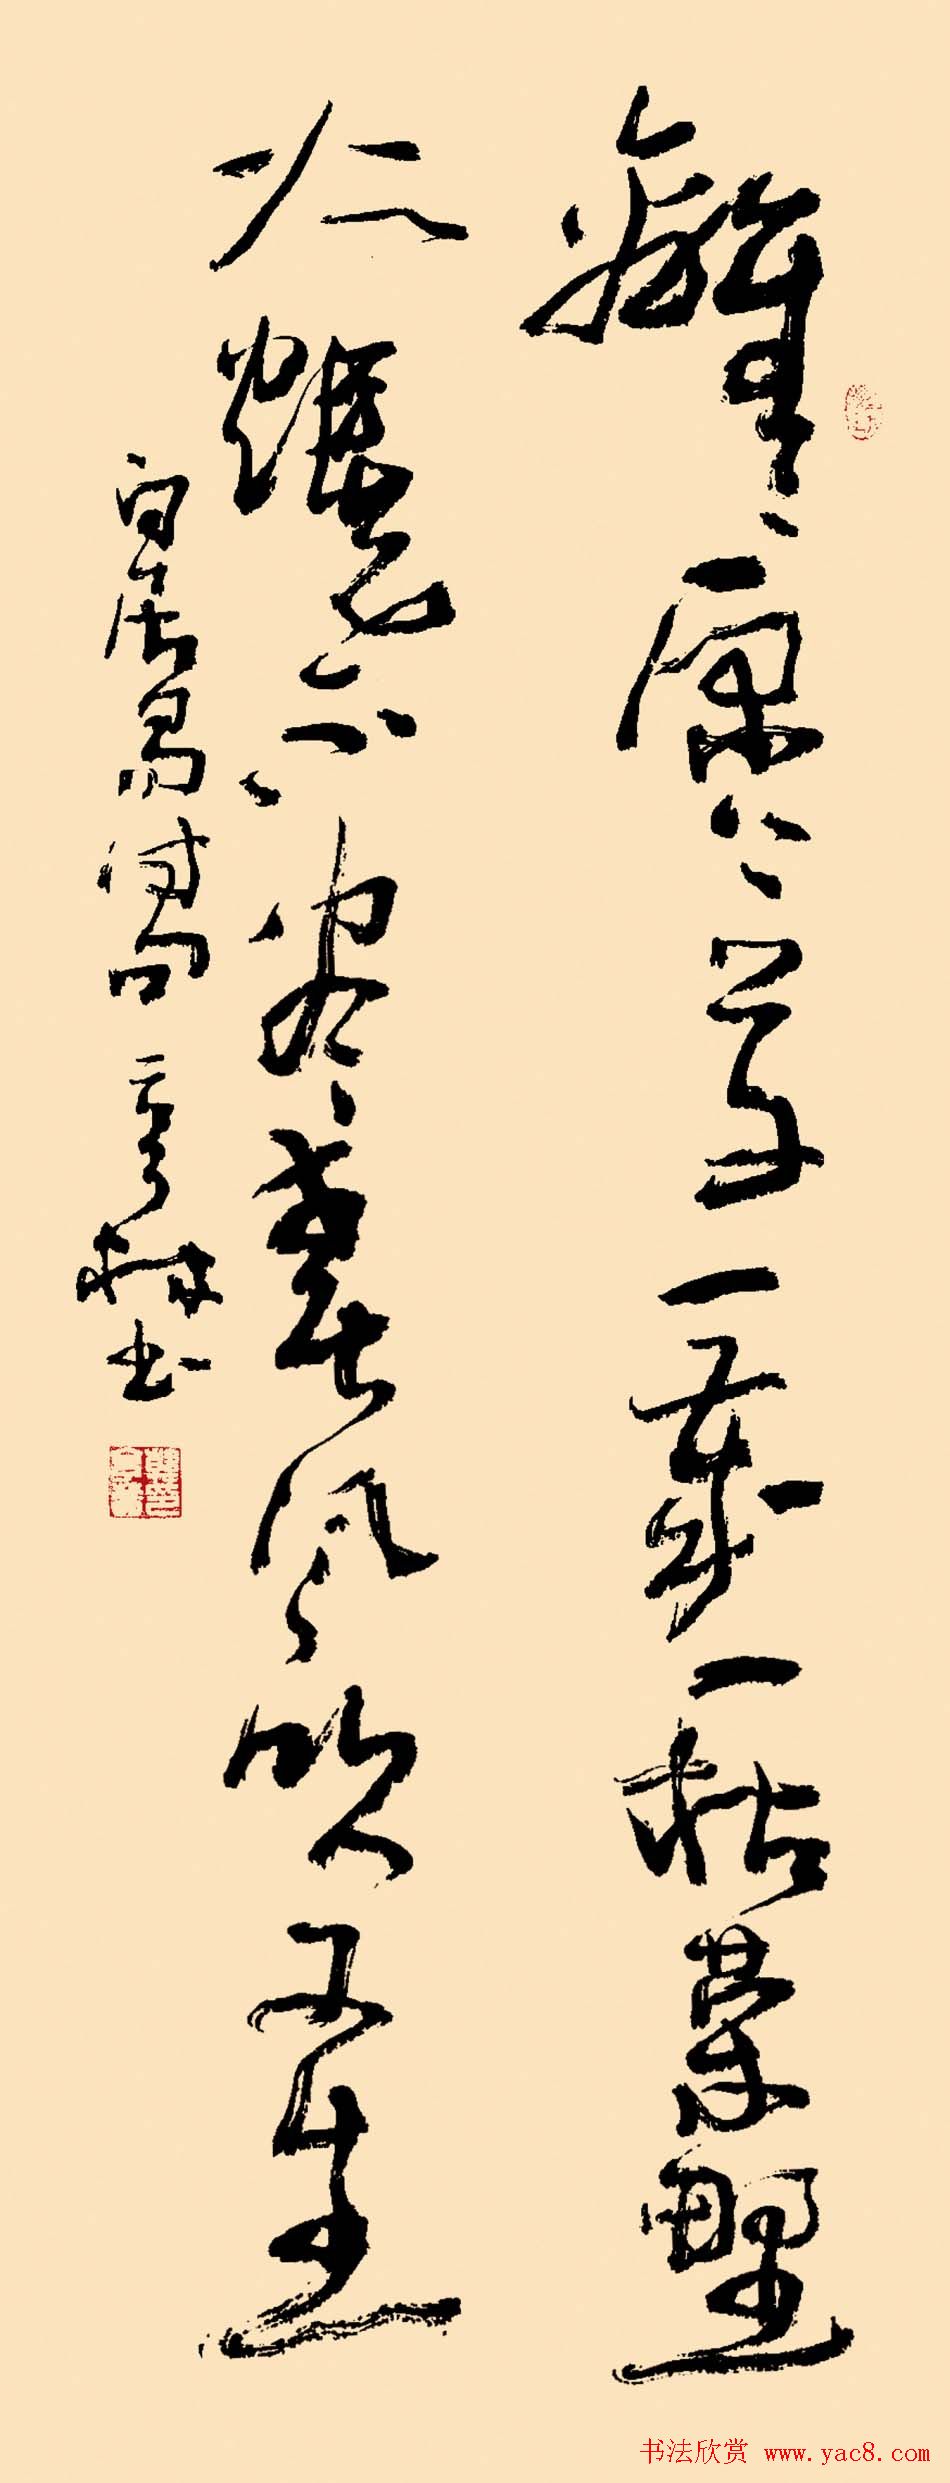 離離原上草一歲一枯榮野
火燒不盡春風吹又生
白居易詩句 林書
书法欣赏 www.yac8.com